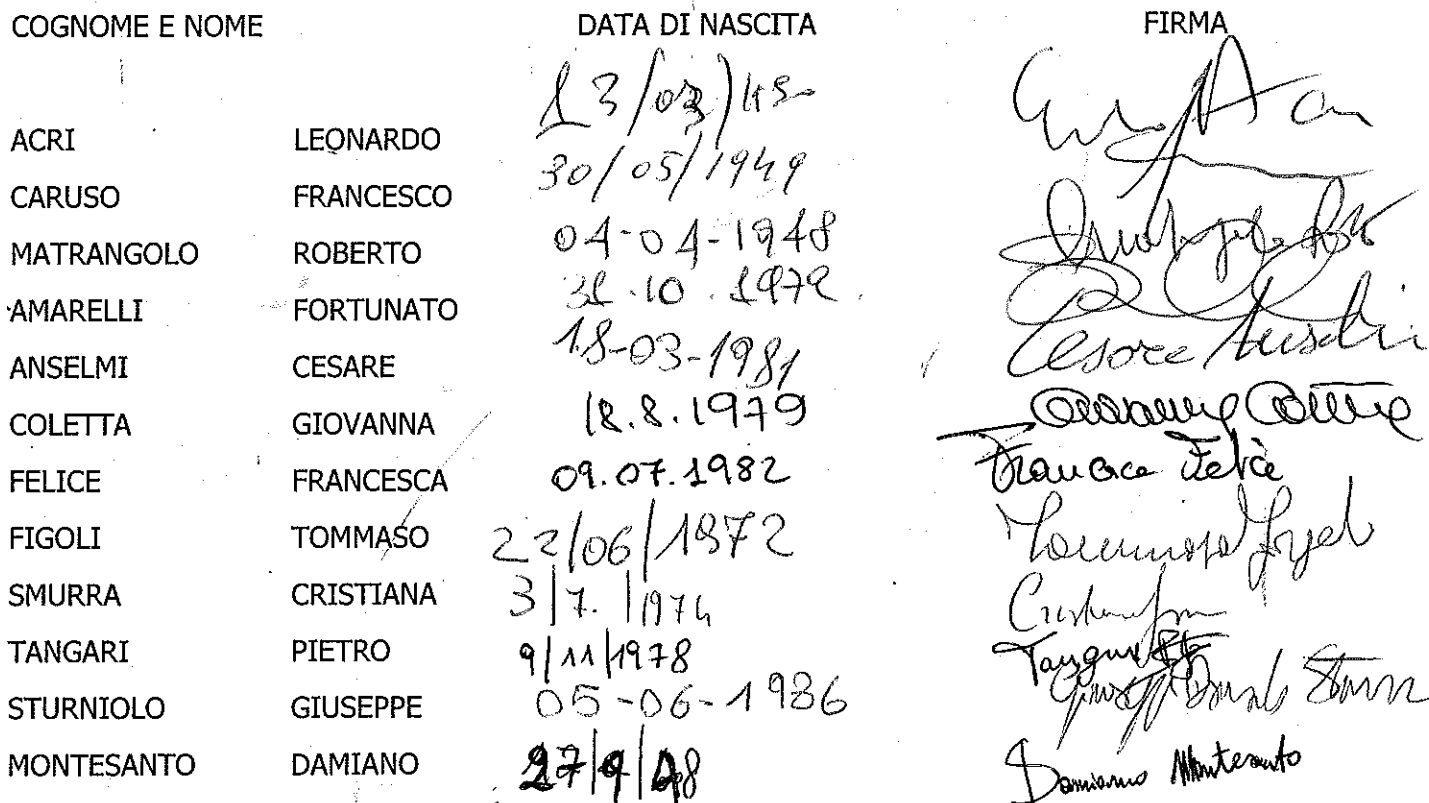 COGNOME E NOME DATA DI NASCITA FIRMA
ACRI LEONARDO
CARUSO FRANCESCO 30/05/1949
MATRANGOLO ROBERTO 04-04-1948
AMARELLI FORTUNATO 31.10.1972
ANSELMI CESARE 18-03-1981 Cesare Anselmi
COLETTA GIOVANNA 18.8.1979 Giovanna Coletta
FELICE FRANCESCA 09.07.1982 Francesca Felice
FIGOLI TOMMASO 22/06/1972 Tommaso Figoli
SMURRA CRISTIANA 3/7./1974
TANGARI PIETRO 9/11/1978 Tangari
STURNIOLO GIUSEPPE 05-06-1986
MONTESANTO DAMIANO Damiano Montesanto